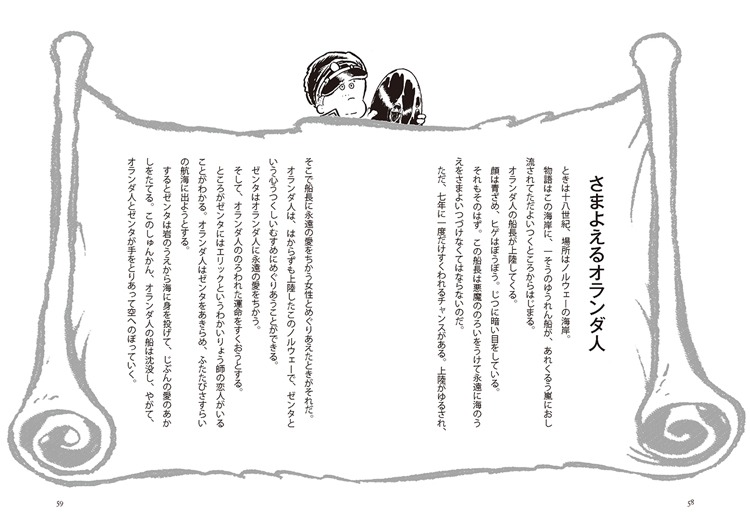 さまよえるオランダ人
ときは十八世紀、場所はノルウェーの海岸。
物語はこの海岸に、一そうのゆうれん船が、あれくるう嵐におし
流されてただよいつくところからはじまる。
オランダ人の船長が上陸してくる。
顔は青ざめ、ヒゲはぼうぼう。じつに暗い目をしている。
それもそのはず。この船長は悪魔ののろいをうけて永遠に海のう
えをさまよいつづけなくてはならないのだ。
ただ、七年に一度だけすくわれるチャンスがある。上陸がゆるされ、
そこで船長に永遠の愛をちかう女性とめぐりあえたときがそれだ。
オランダ人は、はからずも上陸したこのノルウェーで、ゼンタと
いう心うつくしいむすめにめぐりあうことができる。
ゼンタはオランダ人に永遠の愛をちかう。
そして、オランダ人ののろわれた運命をすくおうとする。
ところがゼンタにはエリックというわかいりょう師の恋人がいる
ことがわかる。オランダ人はゼンタをあきらめ、ふたたびさすらい
の航海に出ようとする。
するとゼンタは岩のうえから海に身を投げて、じぶんの愛のあか
しをたてる。このしゅんかん、オランダ人の船は沈没し、やがて、
オランダ人とゼンタが手をとりあって空へのぼっていく。
58
59